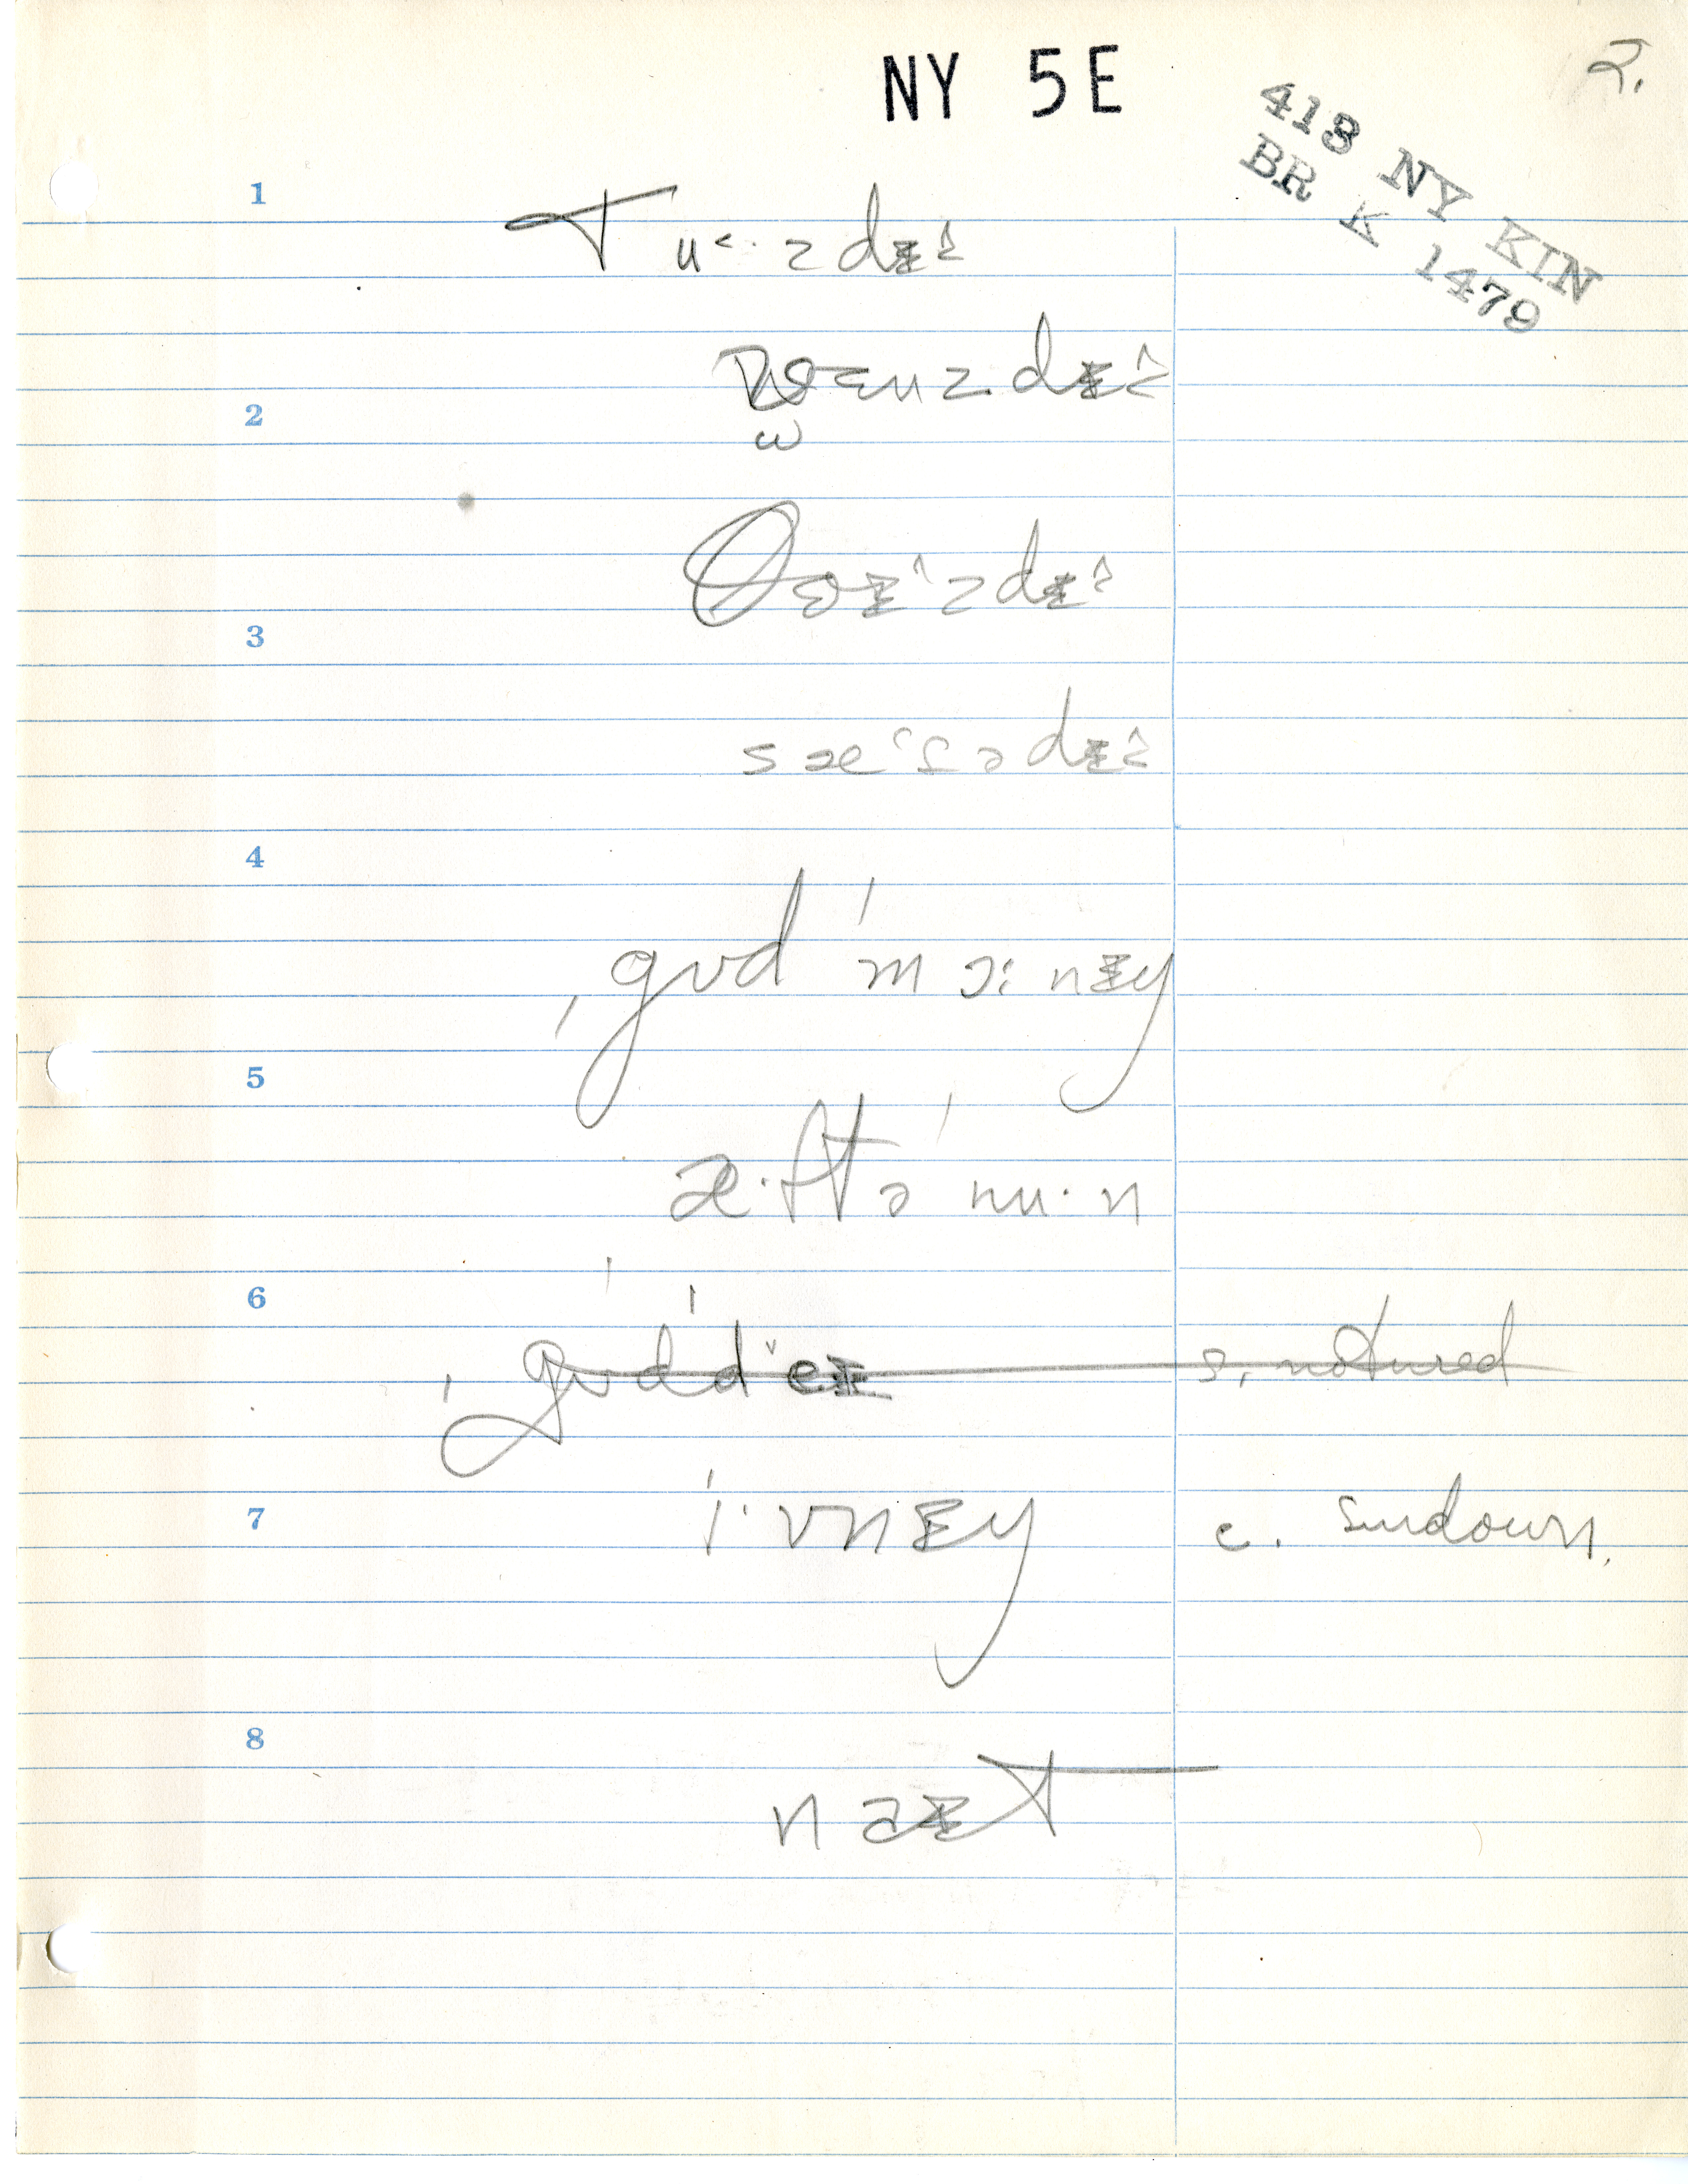 NY 5E
2.
418 NY KIN
BR K 1479
1
Tu<·zdɪ^
2
wɛnzdɪ^
ω
θɚɪ^zdɪ^
3
sæ‘t̬ədɪ^
4
ˌgʊd ˈmɔ:nɪŋ
5
æ·ftəˈnu·n
6
ˌgʊdˈdˇeɪ s. natured
7
ˈi·vnɪŋ c. sundown.
8
naɪt